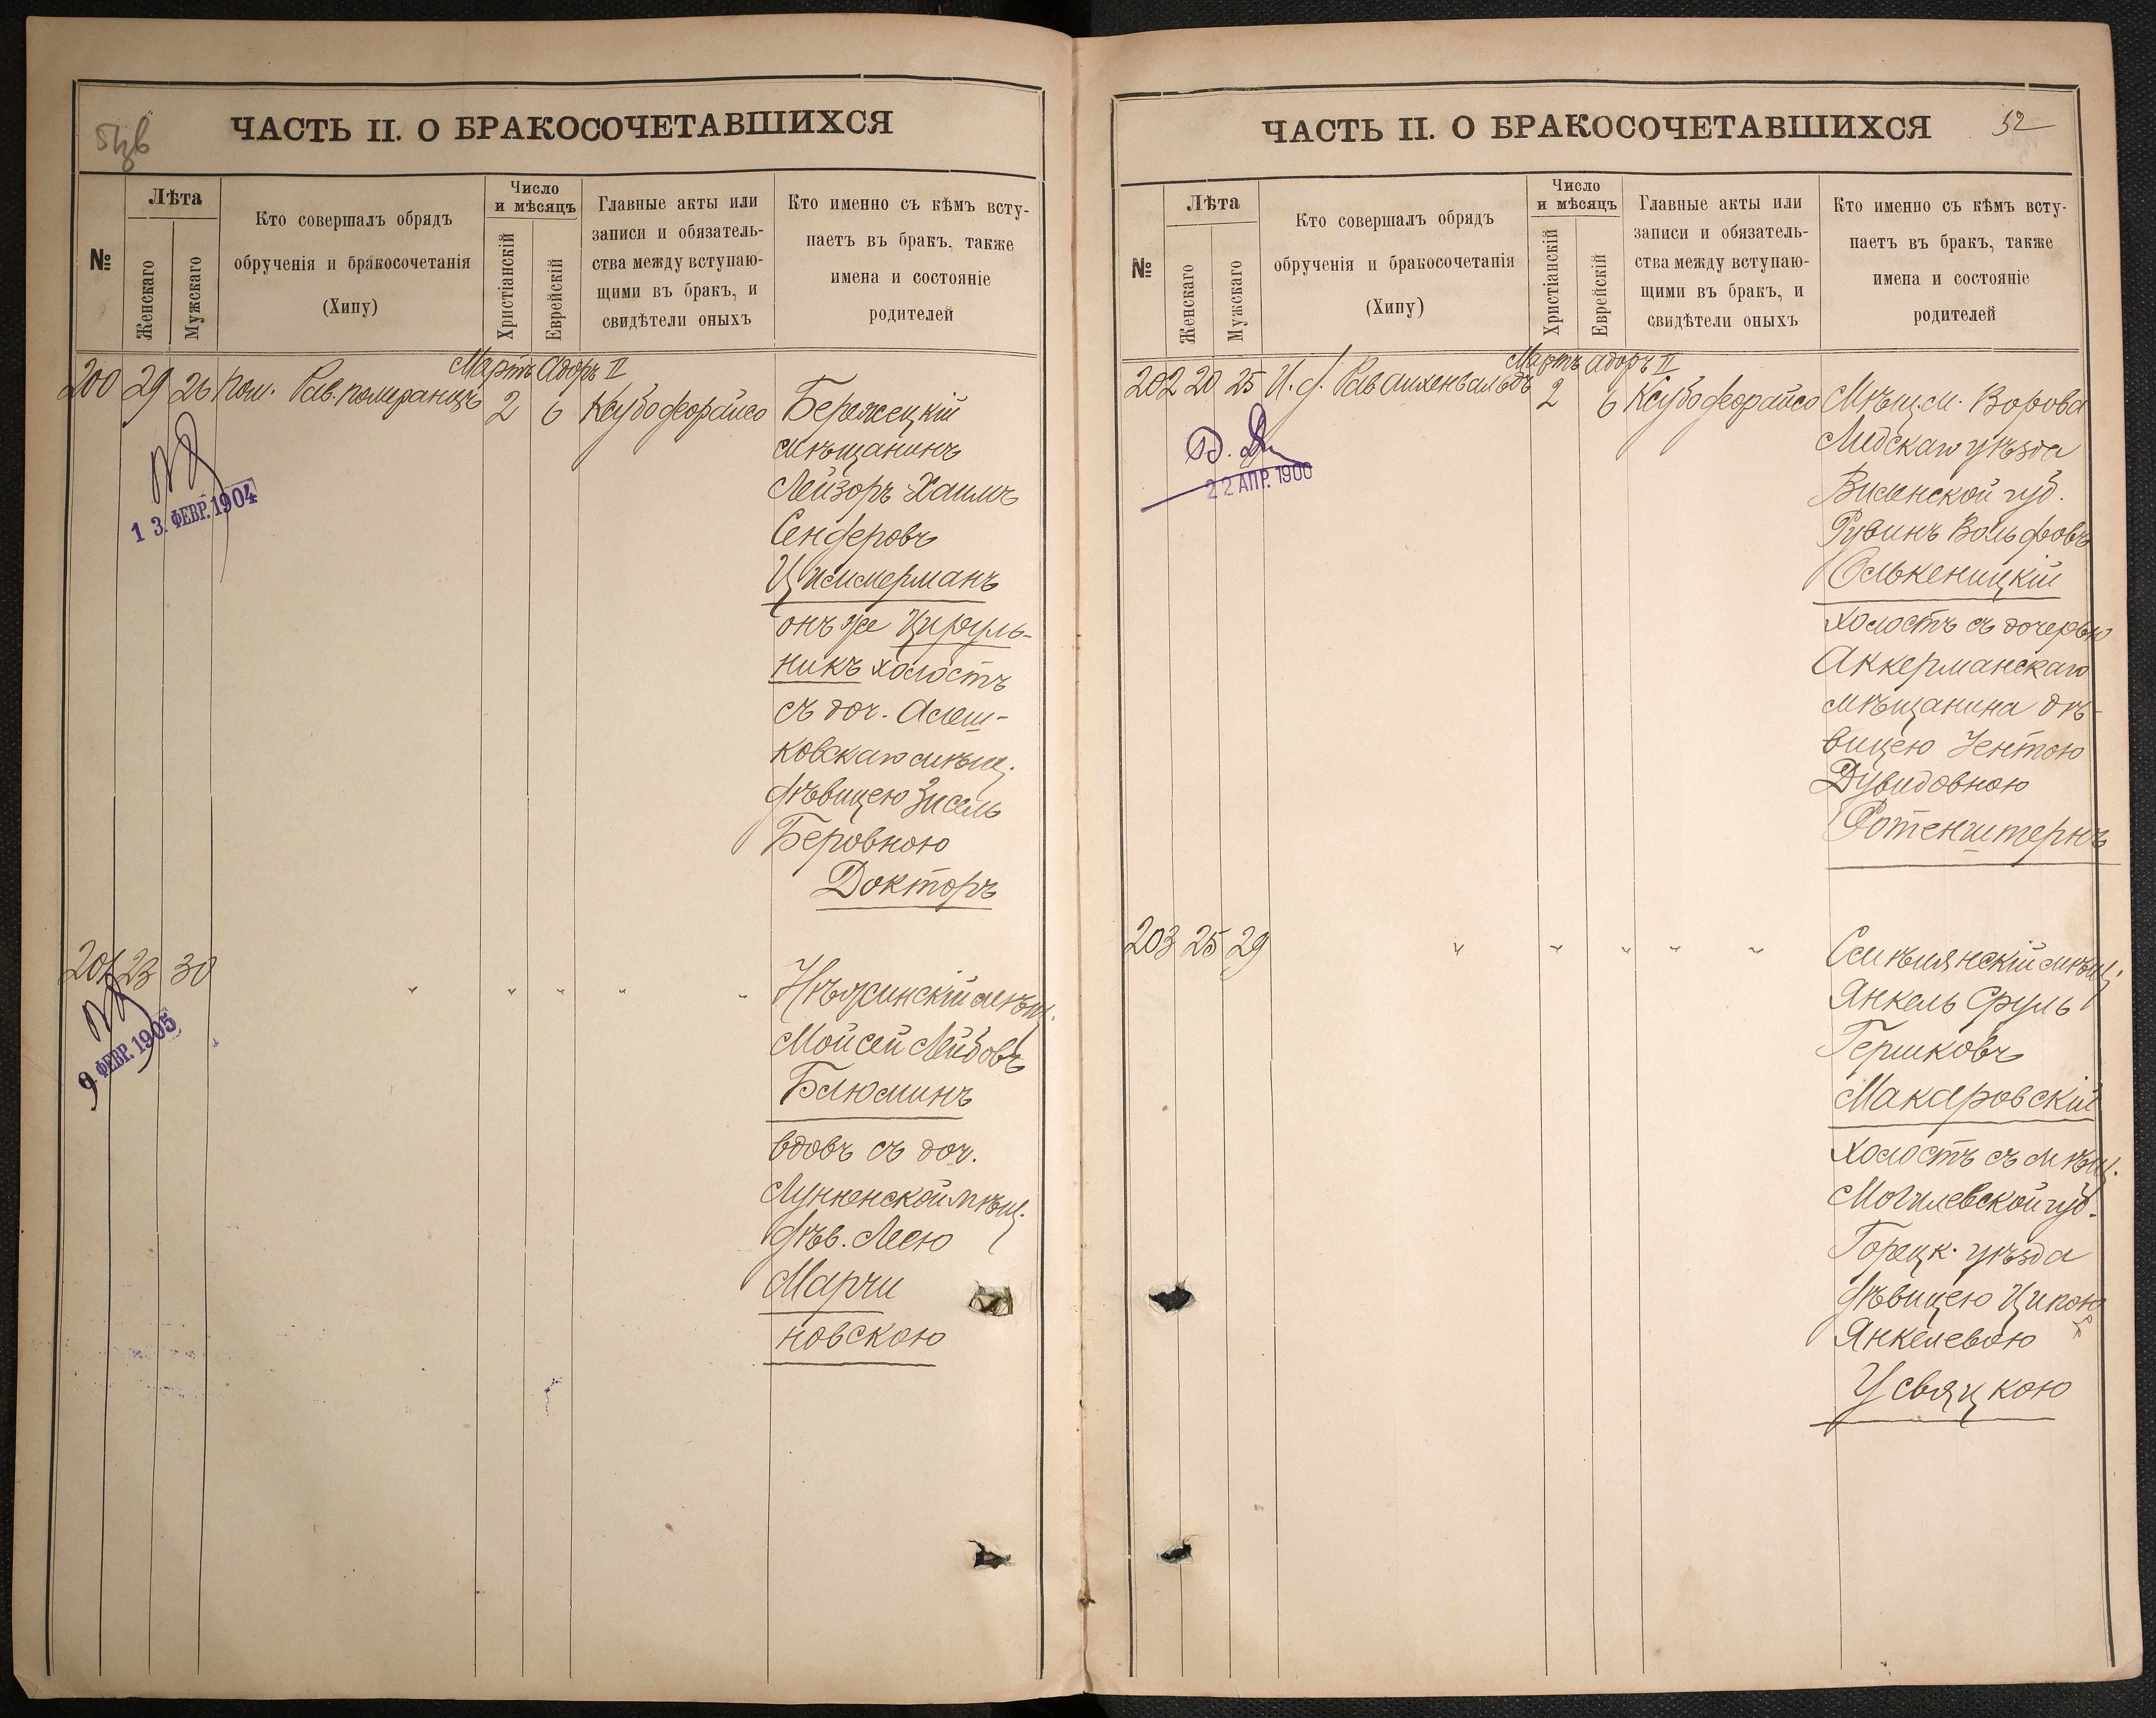 ЧАСТЬ II. О БРАКОСОЧЕТАВШИХСЯ
№
Лѣта
Женскаго
Мужскаго
Кто совершалъ обрядъ
обрученія и бракосочетанія
(Хипу)
Число
и мѣсяцъ
Христіанскій
Еврейскій
Главные акты или
записи и обязатель-
ства между вступаю-
щими въ бракъ, и
свидѣтели оныхъ
Кто именно съ кѣмъ всту-
паетъ въ бракъ, также
имена и состояніе
родителей
Мартъ Адоръ II
200 29 26 Пом. Рав. Померанцъ 2 6 Ксубо деорайсо
13 ФЕВР. 1904
Бережецкій
мѣщанинъ
Лейзоръ Хаимъ
Сендеровъ
Циммерманъ
онъ же Цируль-
никъ холостъ
съ доч. Алеш-
ковскаго мѣщ.
дѣвицею Зисель
Беровною
Докторъ
201 23 30 " " " " "
9 ФЕВР. 1905
Нѣжинскій мѣщ.
Мойсей Лейбовъ
Блюминъ
вдовъ съ доч.
Лунненской мѣщ.
дѣв. Леею
Марчи
новскою
ЧАСТЬ II. О БРАКОСОЧЕТАВШИХСЯ
52
№
Лѣта
Женскаго
Мужскаго
Кто совершалъ обрядъ
обрученія и бракосочетанія
(Хипу)
Число
и мѣсяцъ
Христіанскій
Еврейскій
Главные акты или
записи и обязатель-
ства между вступаю-
щими въ бракъ, и
свидѣтели оныхъ
Кто именно съ кѣмъ всту-
паетъ въ бракъ, также
имена и состояніе
родителей
Мартъ Адоръ II
202 20 25 И. д. Рав Айхенвальдъ 2 6 Ксубо деорайсо
22 АПР. 1900
Мѣщ. м. Ворова
Лидскаго уѣзда
Виленской губ.
Рувинъ Вольфовъ
Олькеницкій
холостъ съ дочерью
Аккерманскаго
мѣщанина дѣ-
вицею Ентою
Дувидовною
Ротенштернъ
203 25 29 " " " " "
Смѣлянскій мѣщ.
Янкель Сруль
Гершковъ
Макаровскій
холостъ съ мѣщ.
Могилевской губ.
Горецк. уѣзда
дѣвицею Ципою
Янкелевою
Усвяцкою